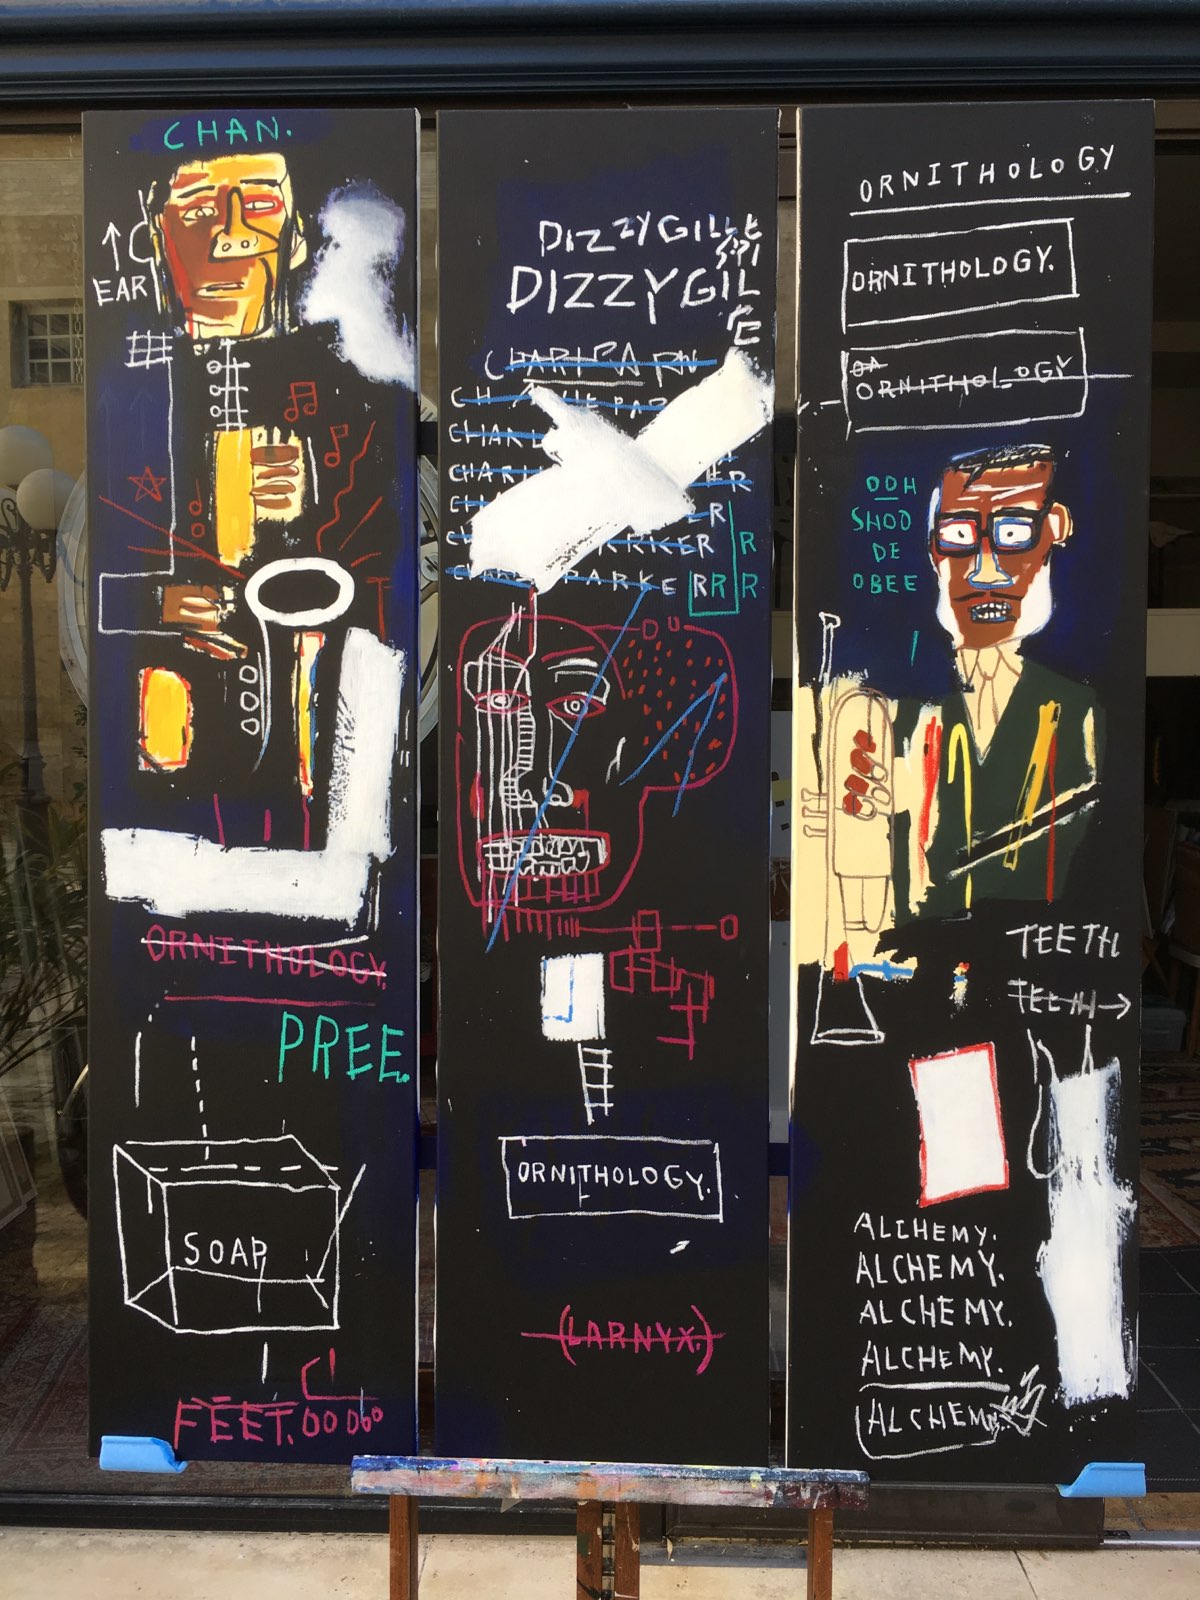 CHAN.
EAR
ORNITHOLOGY.
PREE.
SOAP
FEET.
DIZZYGILLE
SPI
DIZZYGIL
E
CH
CHARL
CHARL
R
R
RKER
R
PARKE
RR
R
ORNITHOLOGY.
(LARNYX.)
ORNITHOLOGY
ORNITHOLOGY.
ORNITHOLOGY
OOH
SHOO
DE
OBEE
TEETH
TEETH
ALCHEMY.
ALCHEMY.
ALCHEMY.
ALCHEMY.
ALCHEM